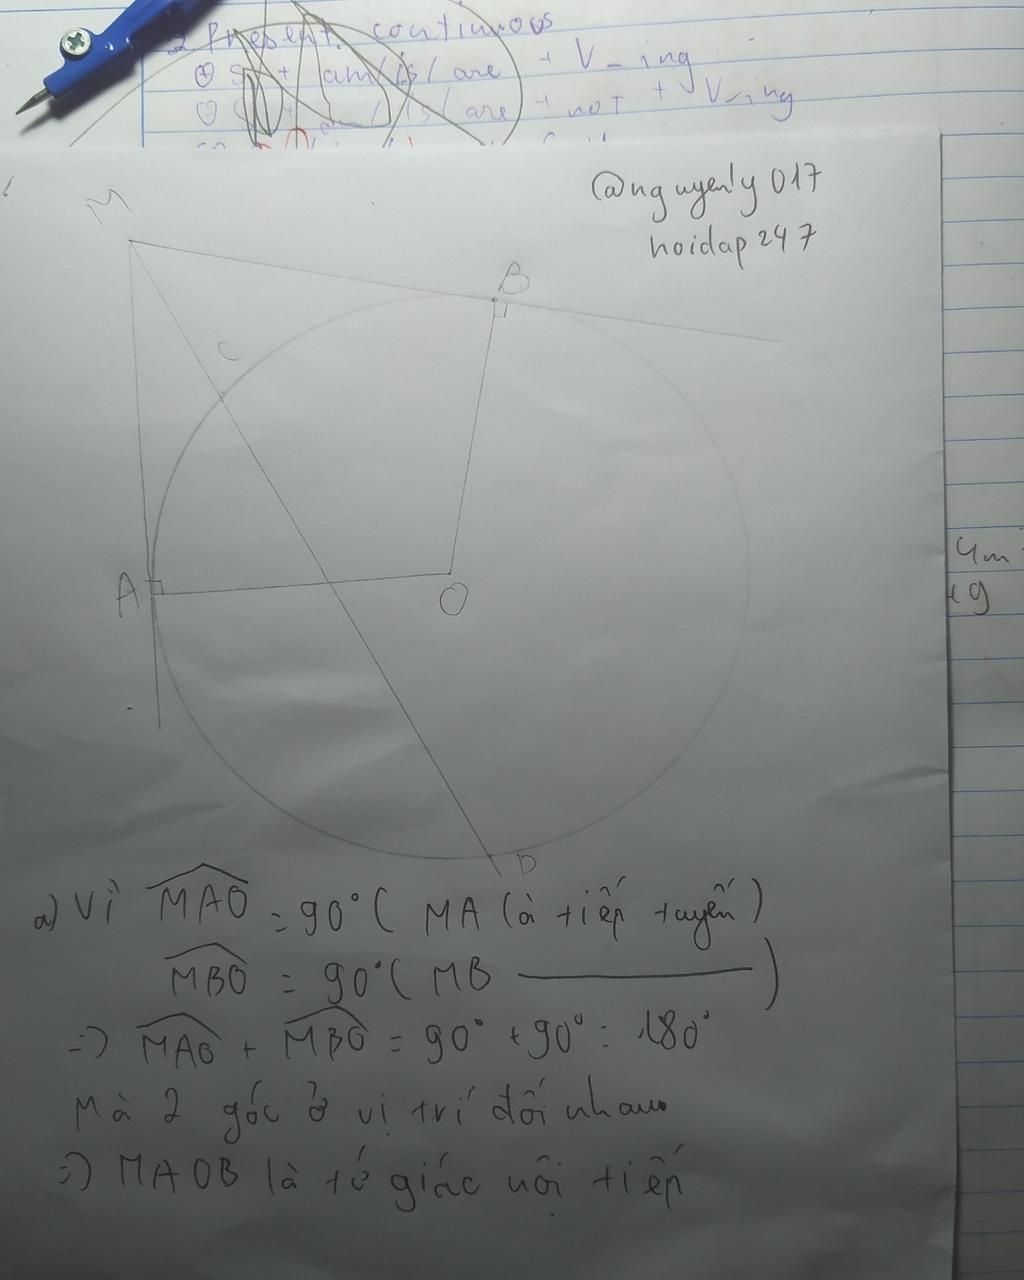 2. Present continuous
⊕ S + am/is/are + V_ing
⊖ S + am/is/are + not + V_ing
@nguyenly017
hoidap247
M
B
C
4m
A
+9
O
D
a) Vì MAO = 90° ( MA là tiếp tuyến )
MBO = 90° ( MB ———— )
=> MAO + MBO = 90° + 90° = 180°
Mà 2 góc ở vị trí đối nhau
=> MAOB là tứ giác nội tiếp